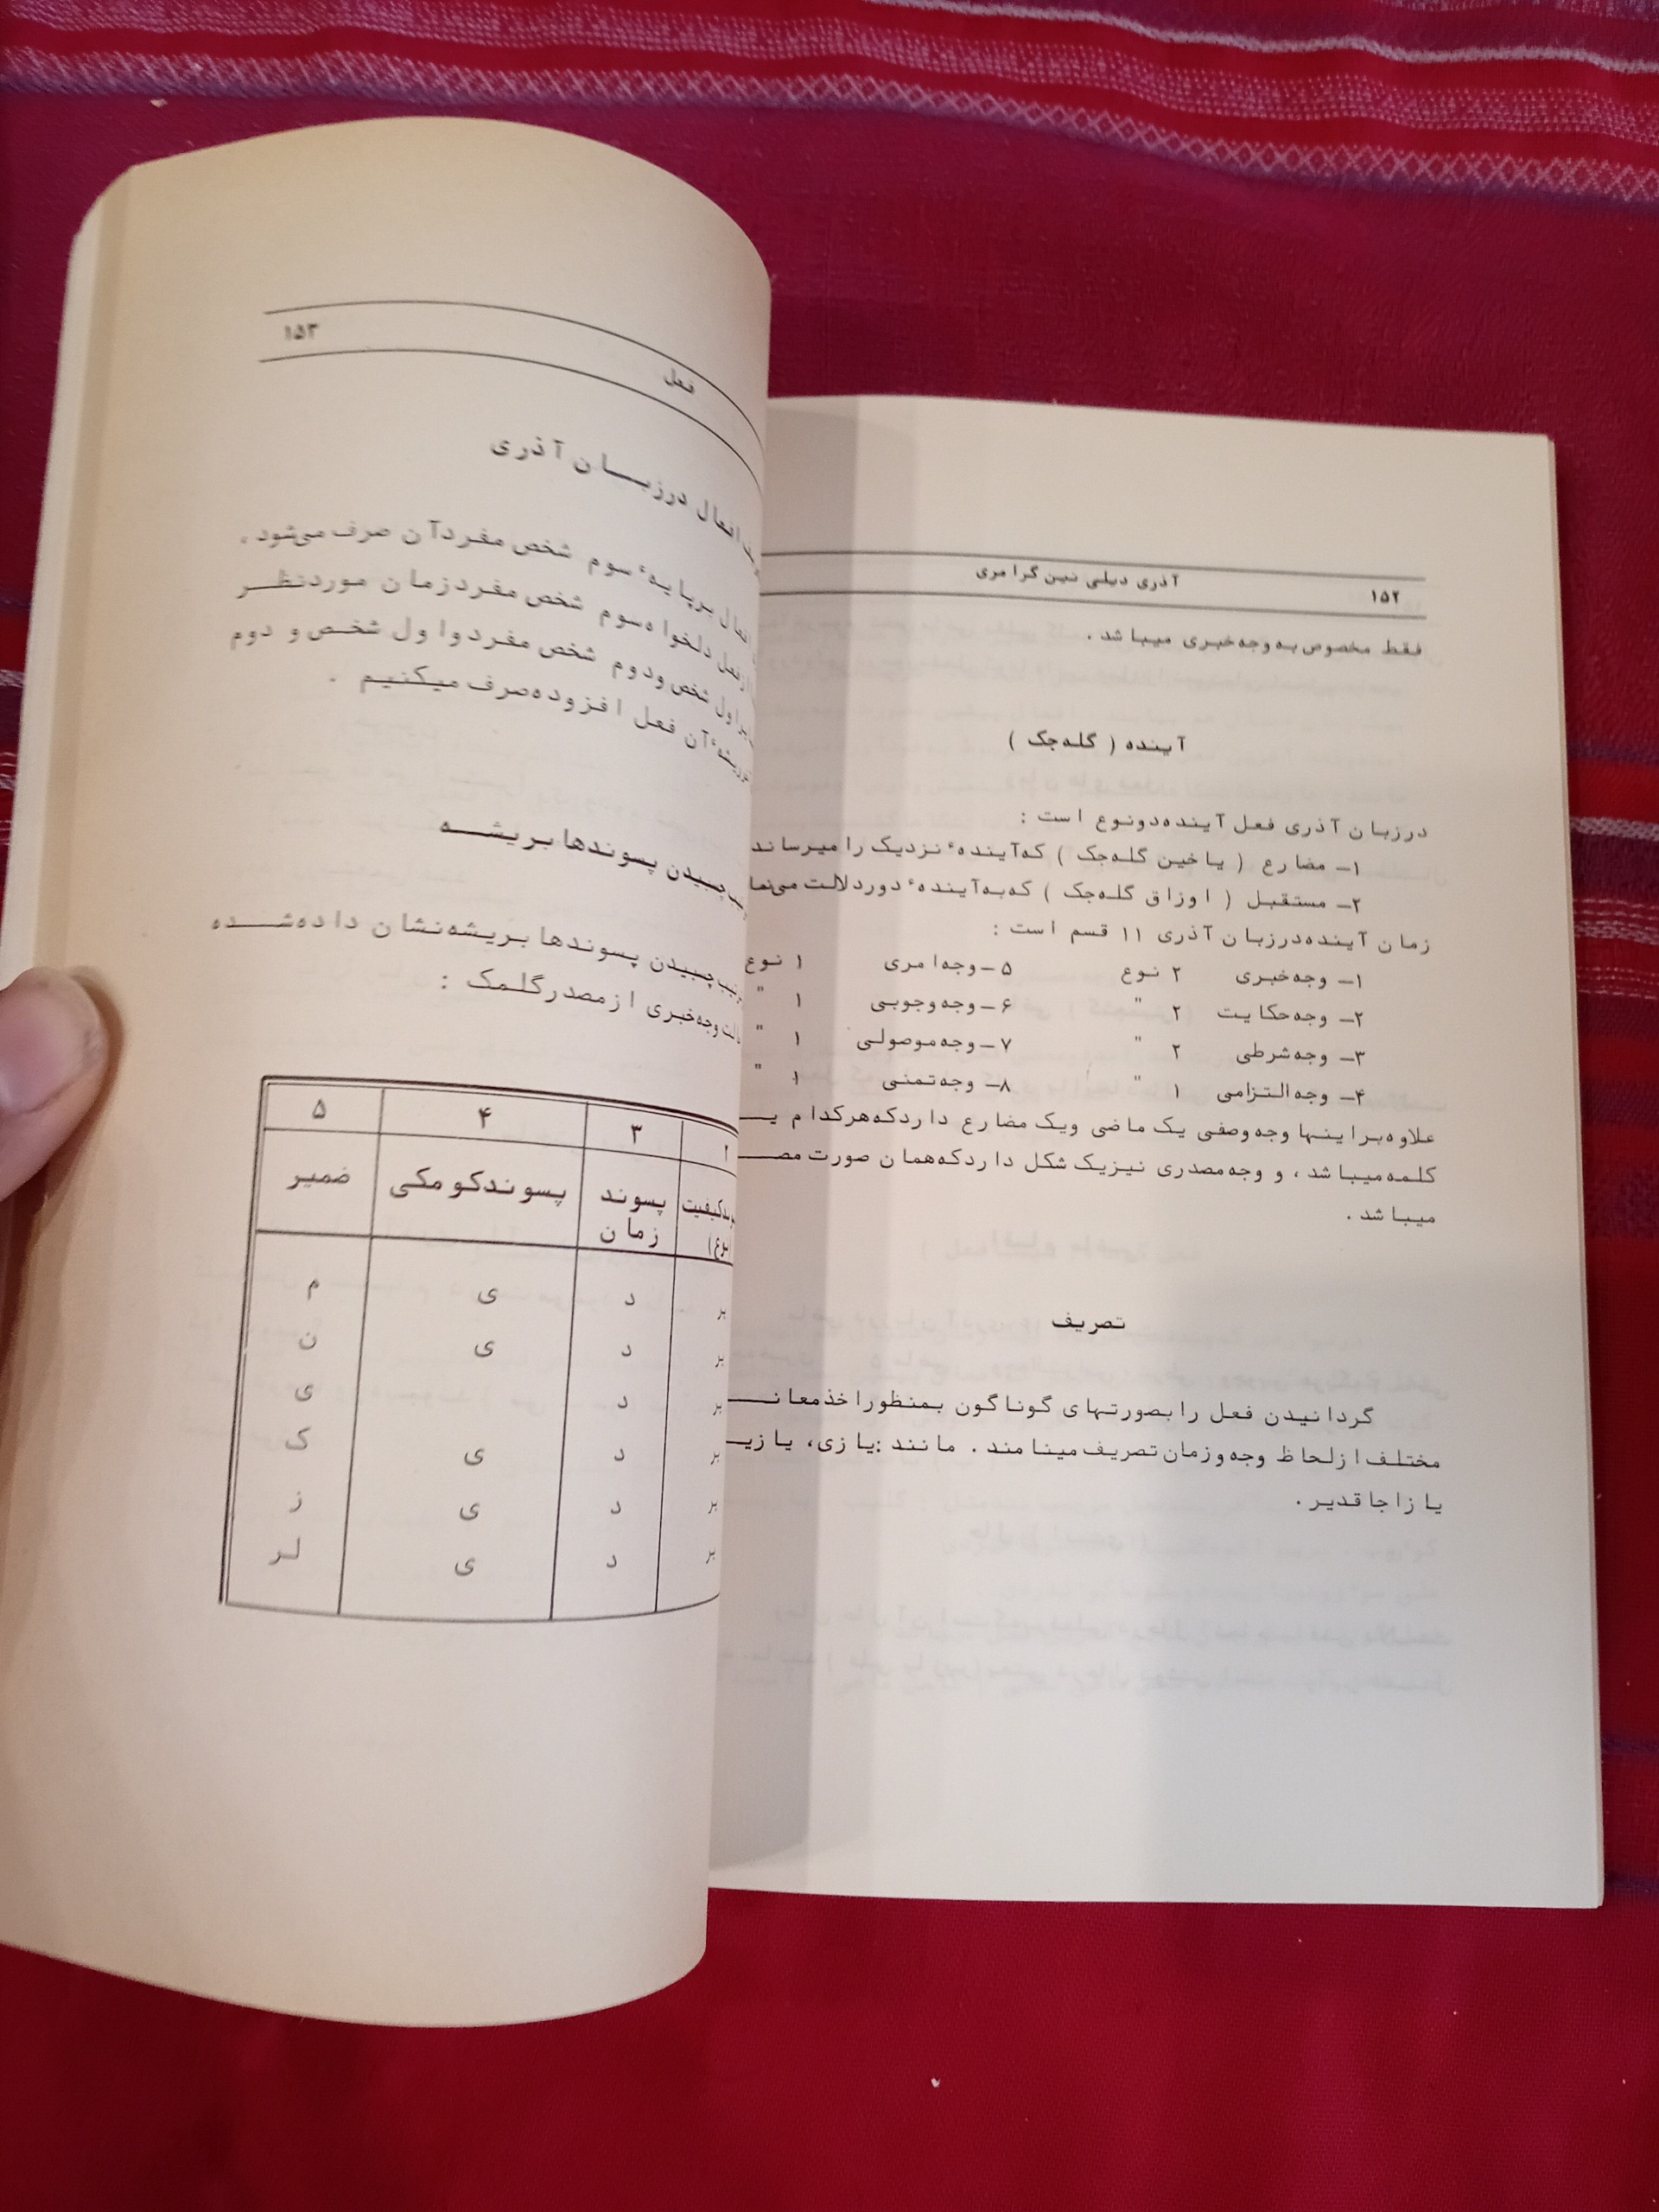 ۱۵۲
آذری دیلی نین گرامری
فقط مخصوص به وجه خبری میباشد .
آینده ( گله‌جک )
درزبان آذری فعل آینده دونوع است :
۱- مضارع ( یاخین گله‌جک ) که آیندهٔ نزدیک را میرساند
۲- مستقبل ( اوزاق گله‌جک ) که به آیندهٔ دور دلالت
زمان آینده درزبان آذری ۱۱ قسم است :
۱- وجه خبری ۲ نوع ۵- وجه امری ۱ نوع
۲- وجه حکایت ۲ " ۶- وجه وجوبی ۱ "
۳- وجه شرطی ۲ " ۷- وجه موصولی ۱ "
۴- وجه التزامی ۱ " ۸- وجه تمنی ۱ "
علاوه براینها وجه وصفی یک ماضی ویک مضارع دارد که هرکدام
کلمه میباشد ، و وجه مصدری نیز یک شکل دارد که همان صورت
میباشد .
تصریف
گردانیدن فعل را بصورتهای گوناگون بمنظور اخذ
مختلف از لحاظ وجه وزمان تصریف مینامند . مانند : یازی،
یازاجاقدیر .
۱۵۳
فعل
افعال درزبان آذری
برپایهٔ سوم شخص مفرد آن صرف می‌شود .
دلخواه سوم شخص مفرد زمان مورد نظر
اول شخص ودوم شخص مفرد واول شخص و دوم
آن فعل افزوده صرف میکنیم .
چسبیدن پسوندها بریشه
چسبیدن پسوندها بریشه نشان داده شده
وجه خبری از مصدر گلمک :
۳ ۴ ۵
پسوند زمان پسوند کومکی ضمیر
بر د ی م
بر د ی ن
بر د ی
بر د ی ک
بر د ی ز
بر د ی لر